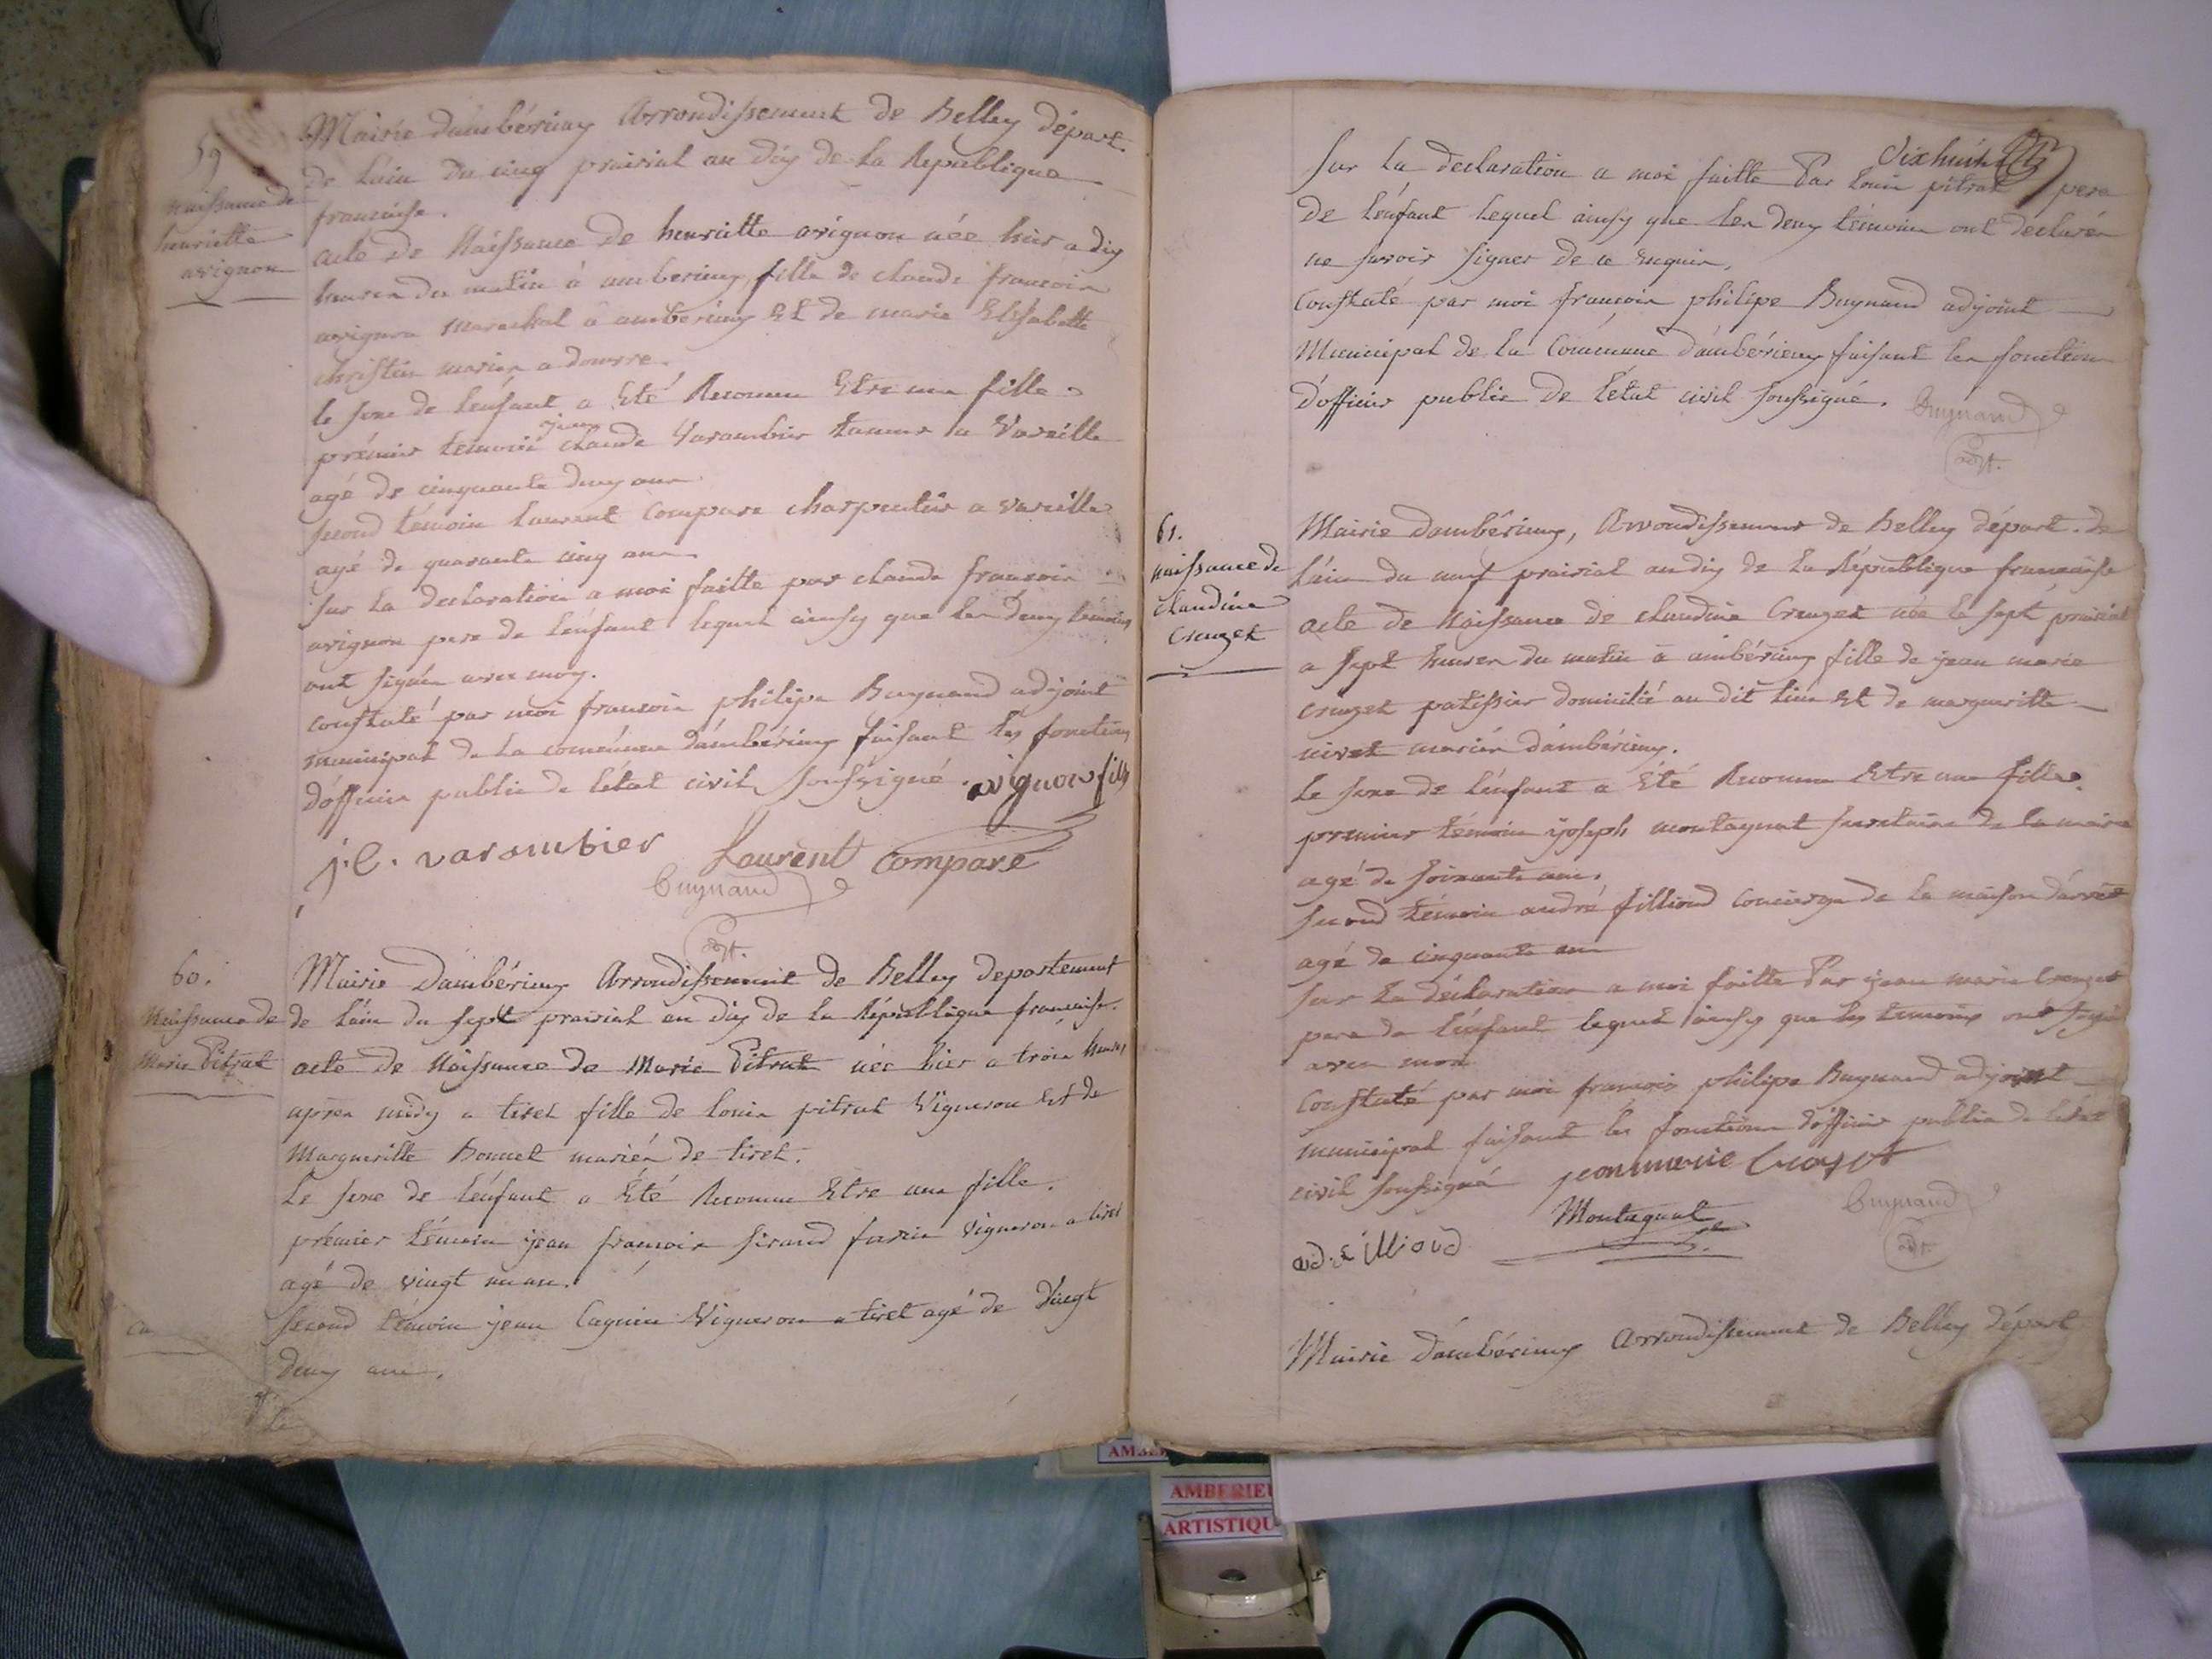 59
naissance de
henriette
avignon
Mairie dambérieux Arrondissement de Belley départ.
de lain du cinq prairial an dix de la Republique
francaise.
acte de Naissance de henriette avignon née hier a dix
heures du matin à amberieux, fille de claude francois
avignon marechal à amberieux Et de marie Elisabette
christin mariés a douvre.
le sexe de lénfant a Eté Reconnu Etre une fille
prémier temoin jean claude Varambier tanneur a Vareille
agé de cinquante deux ans
second témoin laurent Compare charpentier a vareille
agé de quarante cinq ans.
sur la declaration a moi faitte par claude francois
avignon pere de lénfant lequel ainsy que les deux témoins
ont signés avec moy.
constaté par moi francois philipe Buynand adjoint
municipal de la commune dámbérieux faisant les fonctions
dófficier public de létat civil soussigné. avignon fils
j. c. varambier Laurent Compare
Buynand
adjt.
60.
Naissance de
Marie Pitrat
Mairie Dambérieux Arrondissement de Belley departement
de láin du sept prairial an dix de la République francaise.
acte de Naissance de Marie Pitrat née hier a trois heures
aprés midy a tiret fille de louis pitrat Vigneron Et de
Marguerittte Bonnet mariés de tiret.
Le sexe de lénfant a Eté Reconnu Etre une fille.
prémier témoin jean francois sirand vigneron a tiret
agé de vingt un an.
second témoin jean Cagnin Vigneron a tiret agé de Vingt
deux ans.
dixhuit
sur la declaration a moi faitte Par louis pitrat pere
de lénfant lequel ainsy que les deux témoins ont déclarés
ne savoir signer de ce Enquis.
Constaté par moi francois philipe Buynand adjoint
Municipal de la Commune dámbérieux faisant les fonctions
dófficier public de létat civil soussigné. Buynand
adjt.
61.
naissance de
claudine
Creuzet
Mairie dambérieux, Arrondissement de Belley départ. de
láin du neuf prairial an dix de la République francaise
acte de Naissance de claudine Creuzet née le sept prairial
a sept heures du matin à ambérieux fille de jean marie
creuzet patissier domicilié au dit lieu Et de margueritte
nivet mariés dámbérieux.
Le sexe de lénfant a Eté Reconnu Etre une fille.
premier témoin joseph montagnat secretaire de la mairie
agé de soixante ans.
second témoin andré filliond Concierge de la maison dárrêt
agé de cinquante ans
sur la déclaration a moi faitte Par jean marie Creuzet
pere de lénfant lequel ainsy que les temoins ont signé
avec moi
Constaté par moi francois philipe Buynand adjoint
municipal faisant les fonctions dófficier public de létat
civil soussigné jeanmarie Creuzet
Buynand
adjt.
Montagnat
ad. fillioud
Mairie dámbérieux Arrondissement de Belley départ
AMBERIEU
ARTISTIQU